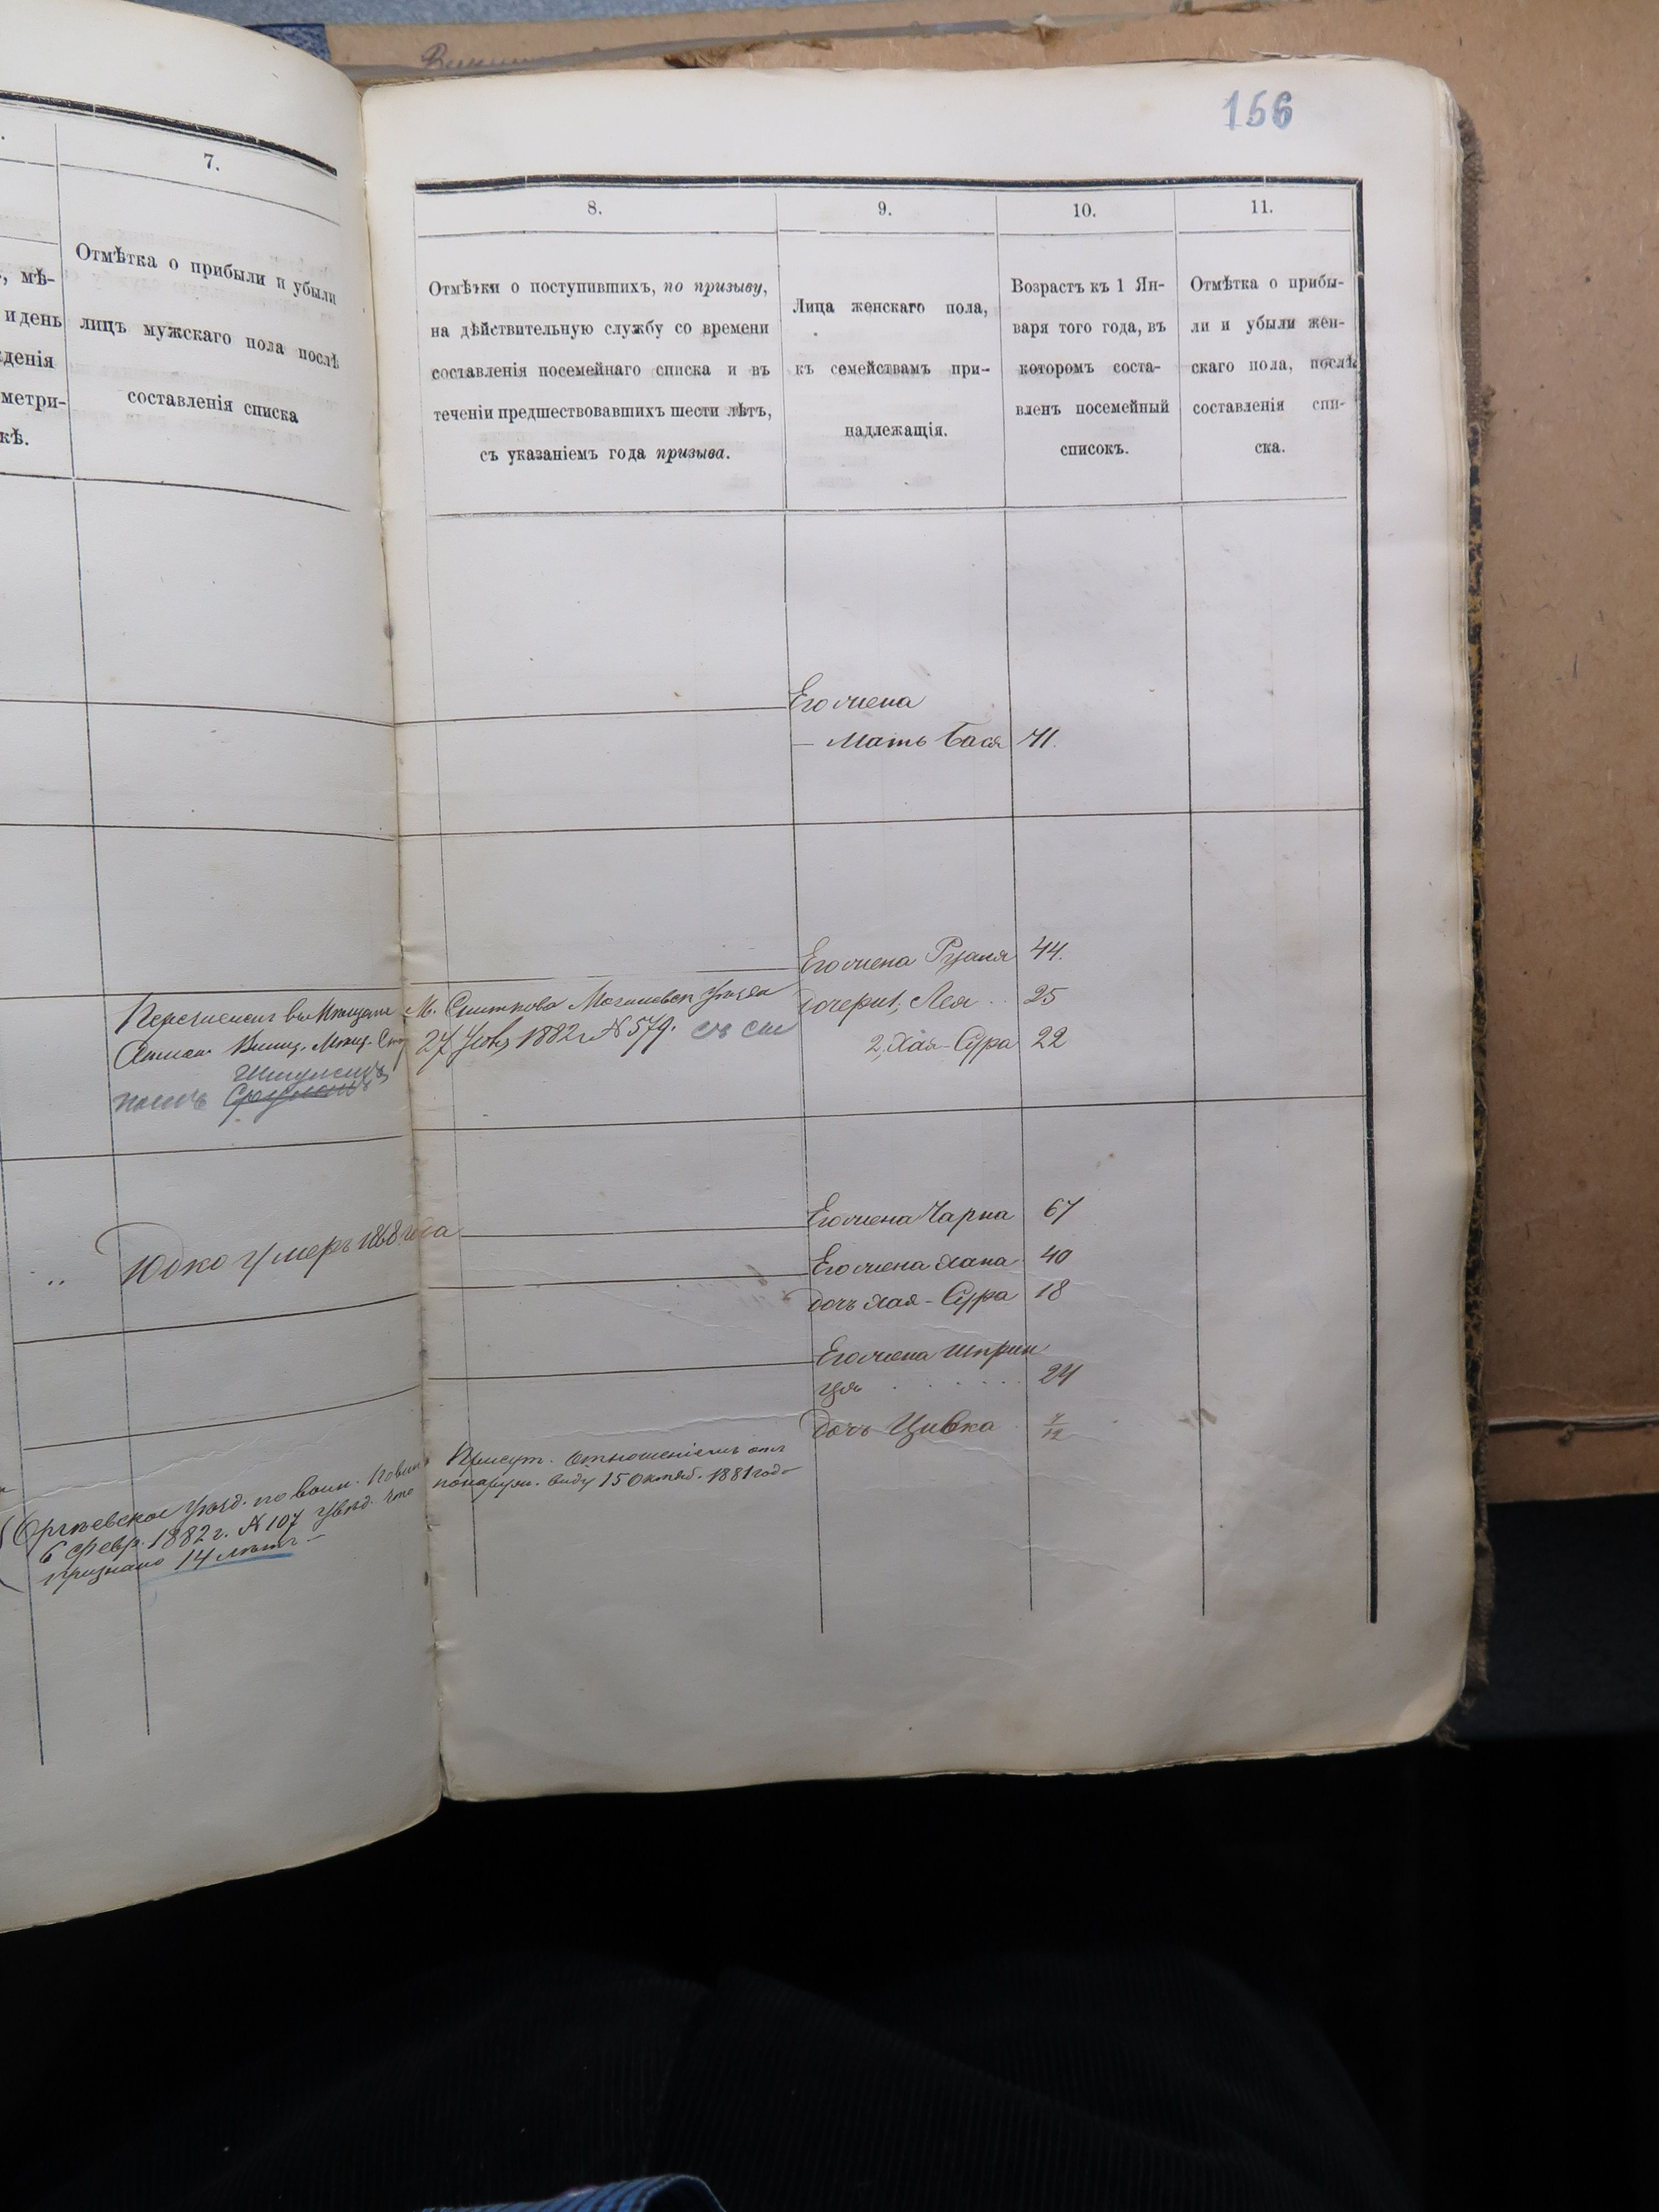 156
7.
Отмѣтка о прибыли и убыли
лицъ мужскаго пола послѣ
составленія списка
, мѣ-
и день
денія
метри-
кѣ.
8.
Отмѣтки о поступившихъ, по призыву,
на дѣйствительную службу со времени
составленія посемейнаго списка и въ
теченіи предшествовавшихъ шести лѣтъ,
съ указаніемъ года призыва.
9.
Лица женскаго пола,
къ семействамъ при-
надлежащія.
10.
Возрастъ къ 1 Ян-
варя того года, въ
которомъ соста-
вленъ посемейный
списокъ.
11.
Отмѣтка о прибы-
ли и убыли жен-
скаго пола, послѣ
составленія спи-
ска.
Его жена
— Мать Бася 71.
Его жена Рухля 44.
Дочери 1, Лея .. 25
2, Хая-Сура 22
Перечисленъ въ Мѣщане М. Сниткова Могилевск Уѣзда
Винниц. Мѣщ. 27 1882 г № 579. съ
Шмулемъ
Юдко умеръ 1868 года
Его жена Чарна 67
Его жена Хана 40
Дочь Хая-Сура 18
Его жена Шприн
ця . . . . . 24
Дочь Цивка 7/12
Оргѣевское Уѣзд. по воин. Повин. Присут. Отношеніемъ отъ
6 февр. 1882 г. № 107 увѣд. что по наружн. виду 15 Октяб. 1881 года
признано 14 лѣтъ —